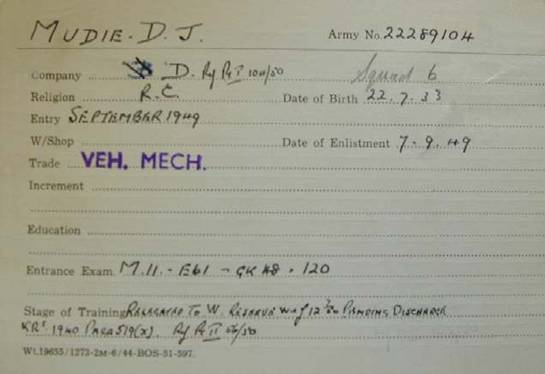 MUDIE. D. J. Army No. 22289104
Company D. Squad 6
Religion R.C. Date of Birth 22.7.33
Entry SEPTEMBER 1949
W/Shop Date of Enlistment 7-9-49
Trade VEH. MECH.
Increment
Education
Entrance Exam. M.11. - E61 - GK 48 = 120
Stage of Training RELEGATED TO W. RESERVE PENDING DISCHARGE
KR' 1940 PARA 519(X).
Wt.19655/1273-2M-6/44-BOS-51-597.